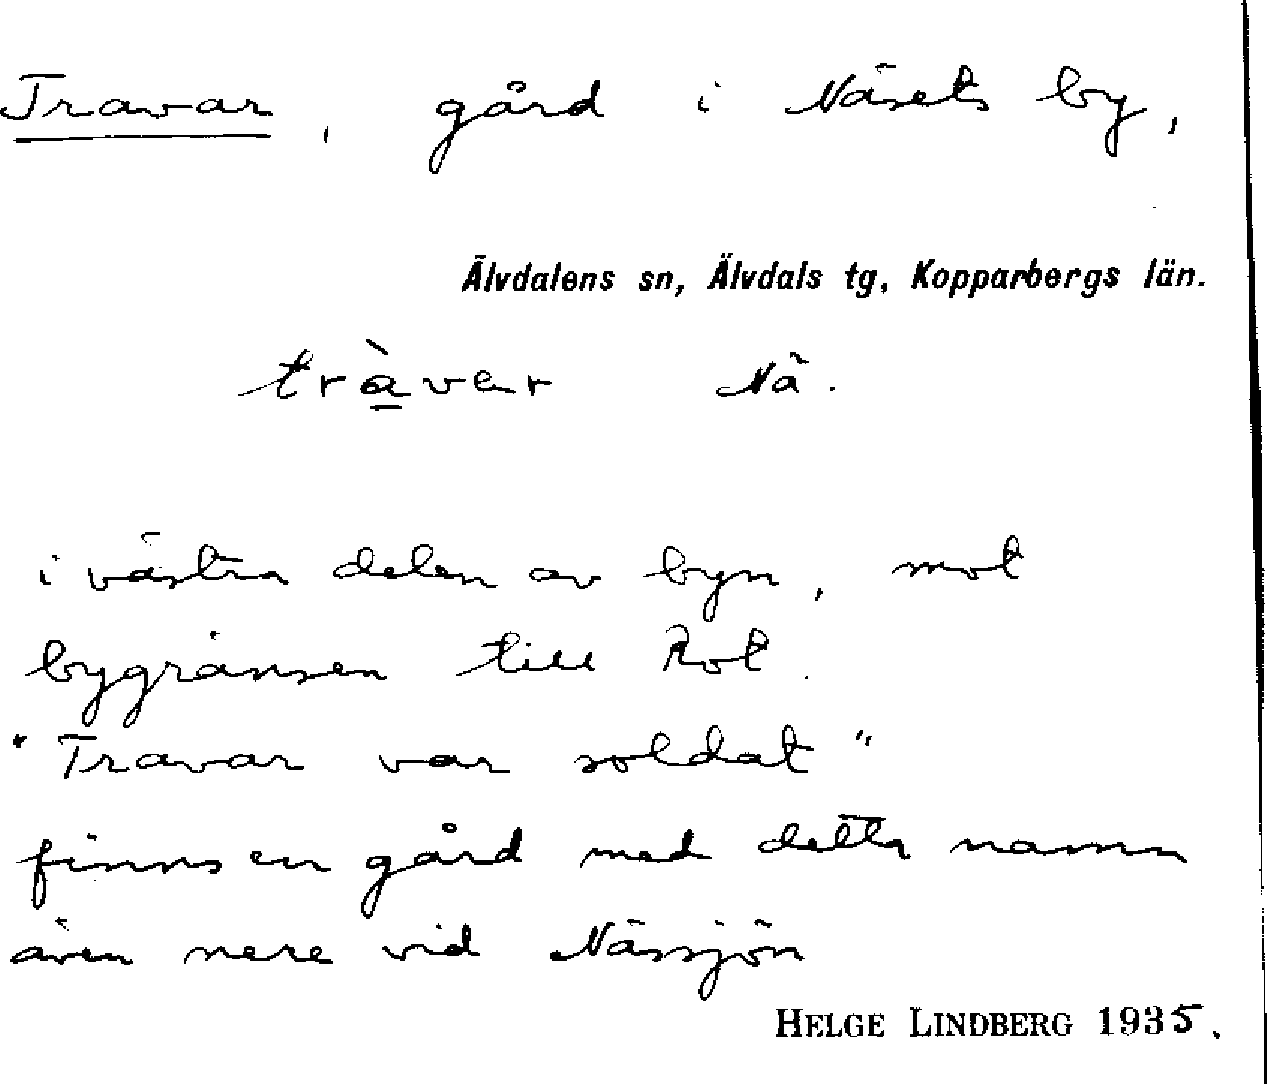 Travar, gård i Näsets by,
Älvdalens sn, Älvdals tg, Kopparbergs län.
tràvar Nä.
i västra delen av byn, mot
bygränsen till Rot.
"Travar var soldat"
finns en gård med detta namn
även nere vid Nässjön
HELGE LINDBERG 1935.